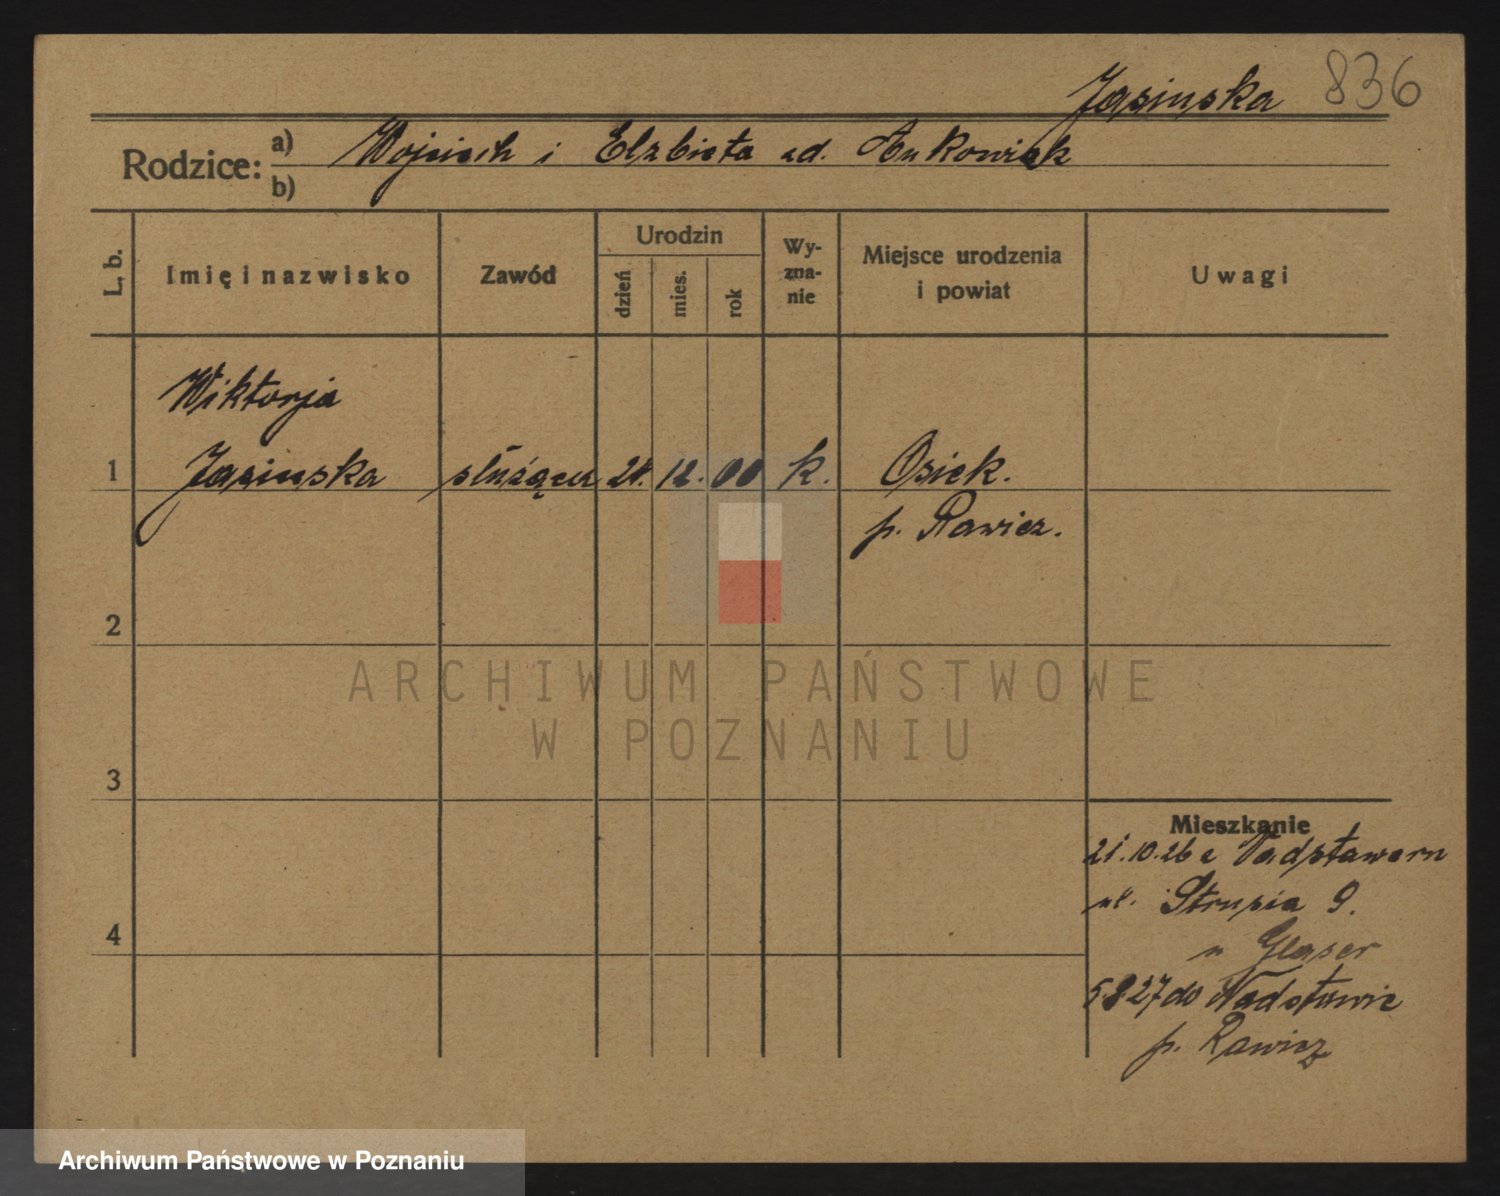 Jasinska 836
Rodzice: a) Wojciech i Elzbieta zd. Ankowiak
b)
L, b.
Imię i nazwisko
Zawód
Urodzin
dzień
mies.
rok
Wy-
zna-
nie
Miejsce urodzenia
i powiat
Uwagi
Wiktorja
1 Jasinska służąca 12. 00 k. Osiek.
p. Rawicz.
2
ARCHIWUM PAŃSTWOWE
W POZNANIU
3
Mieszkanie
21.10.26 z
ul. Strusia 9.
u Glaser
4
5.8.27 do Nadstawie
p. Rawicz
Archiwum Państwowe w Poznaniu